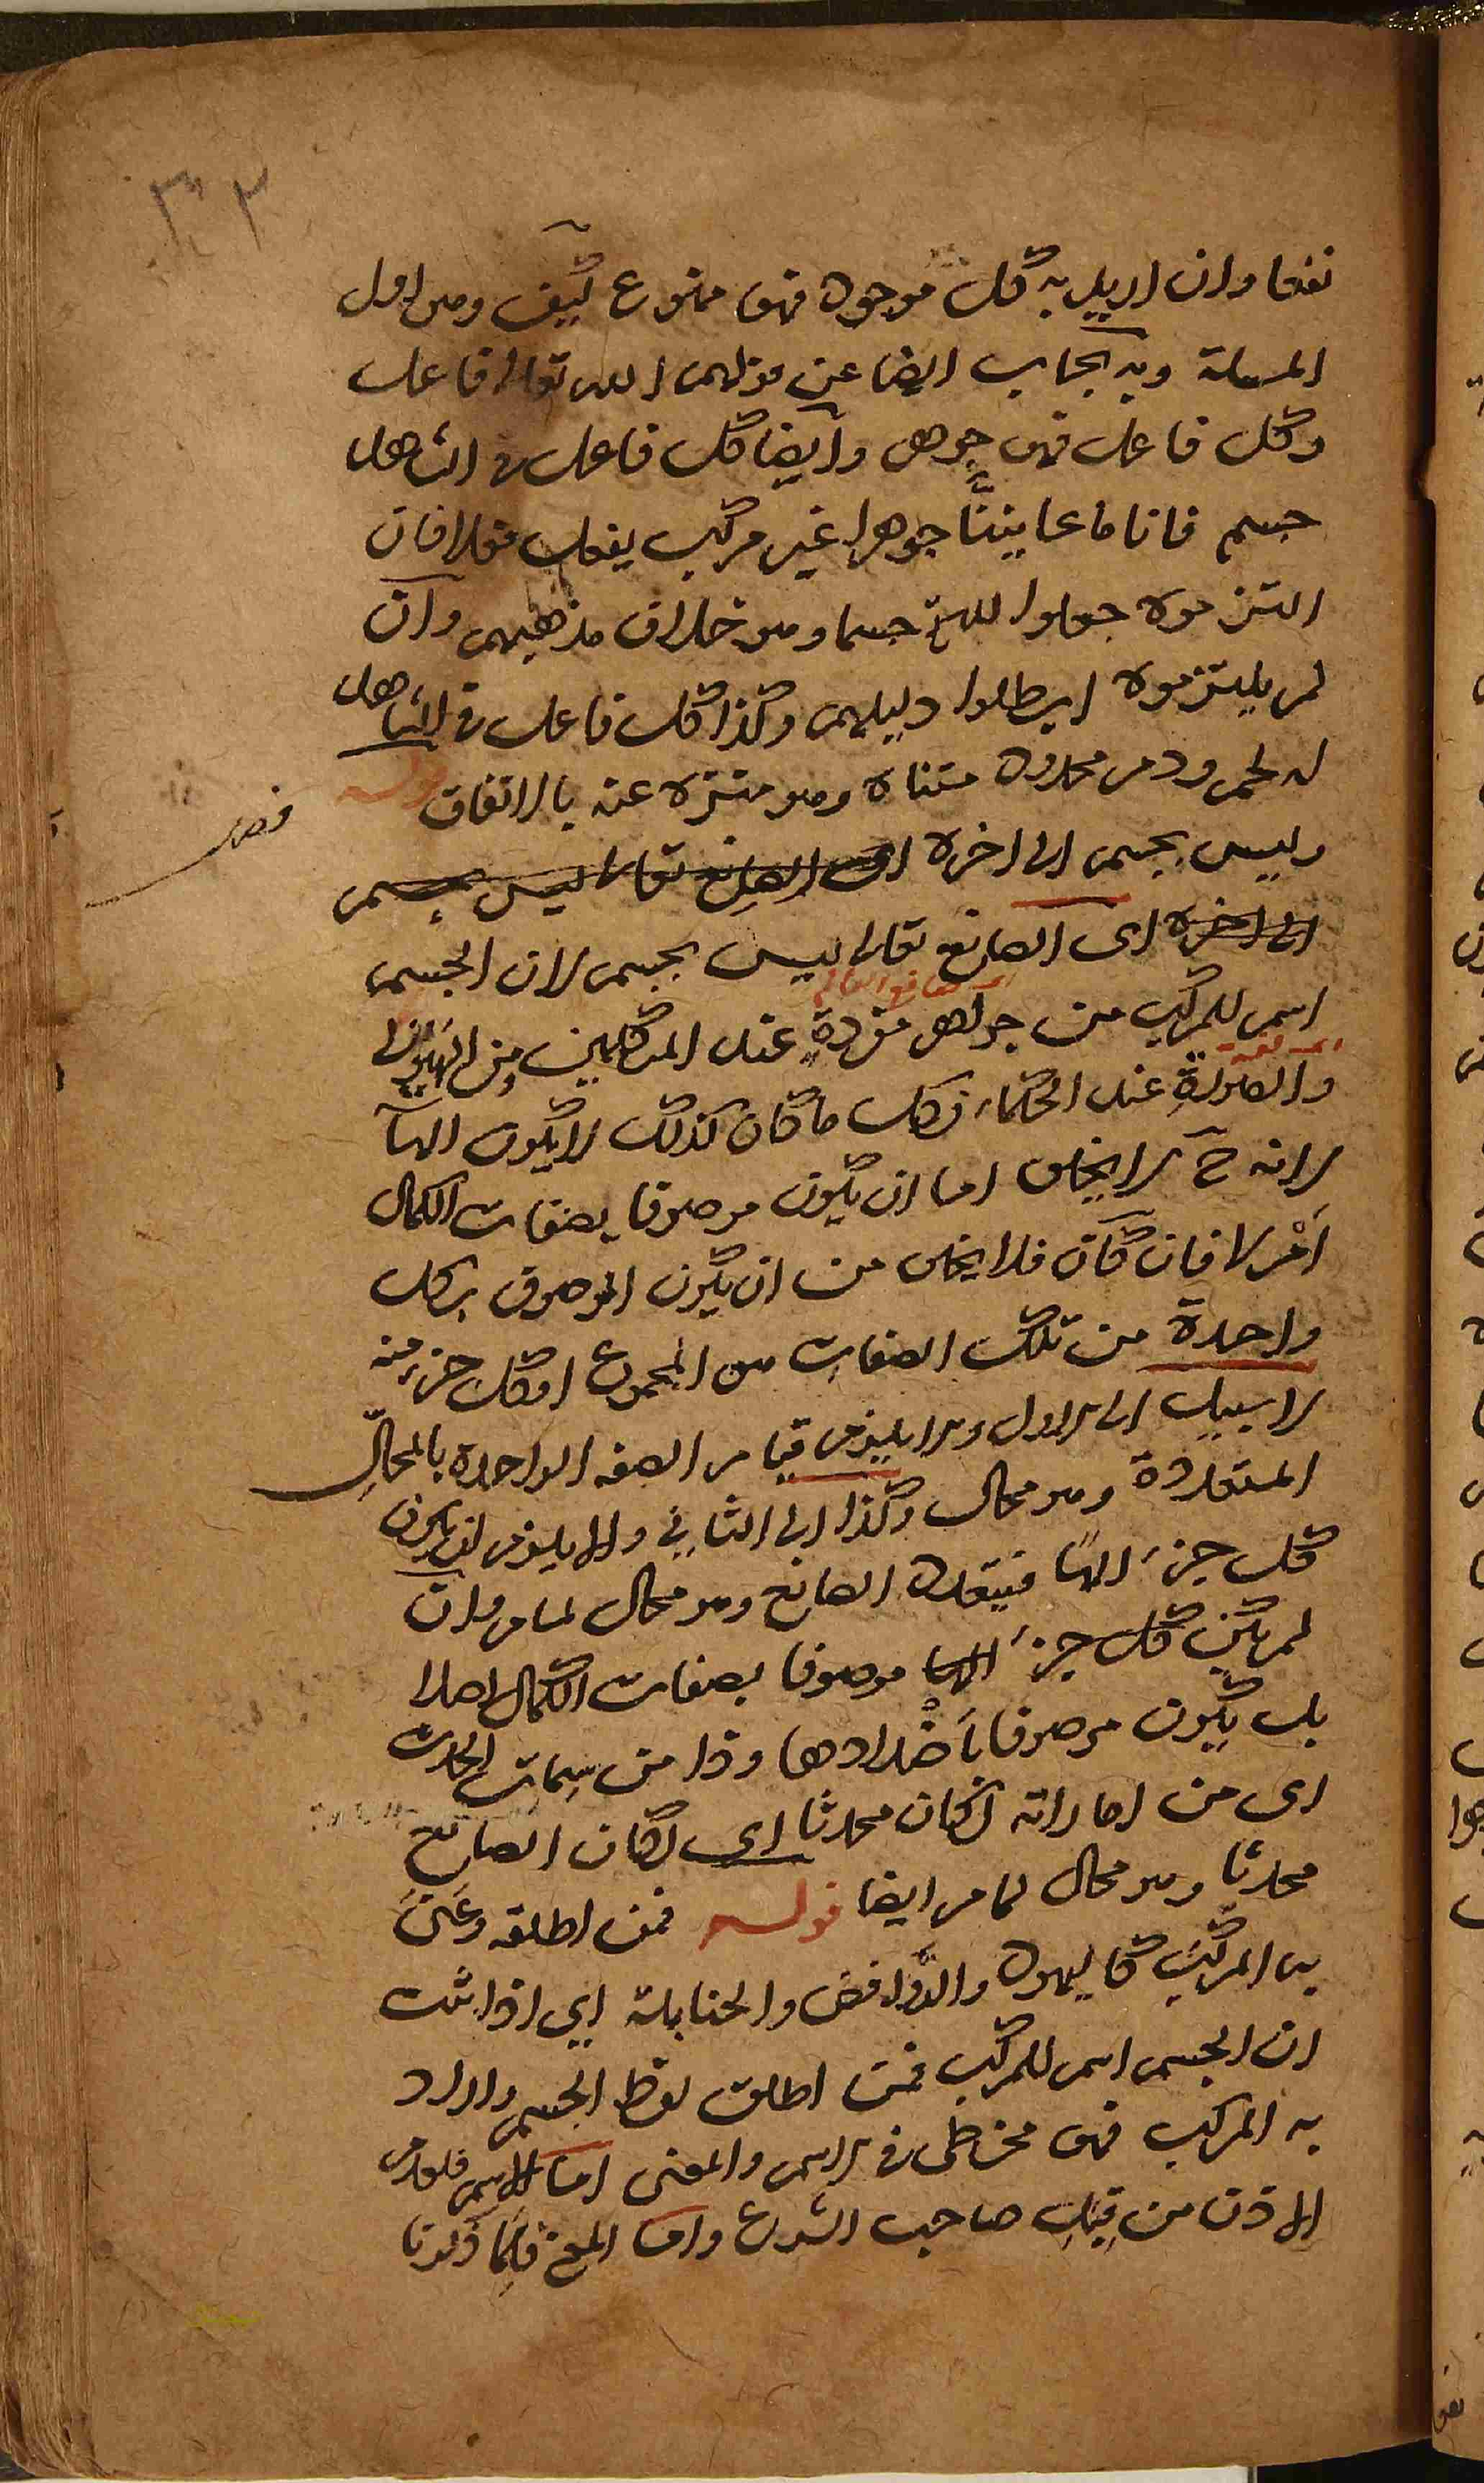 ٣٣
نفعا وان اريد به كل موجود فهو ممنوع كيف وهو اول
المسئلة وبه يجاب ايضا عن قولهم الله تعالى فاعل
وكل فاعل فهو جوهر وايضا كل فاعل في الشاهد
جسم فانا ما عاينّا جوهرا غير مركب يفعل فعلا فان
التزموه جعلوا الله تع جسما وهو خلاف مذهبهم وان
لم يلتزموه ابطلوا دليلهم وكذا كل فاعل في الشاهد
له لحم ودم محدود متناه وهو منزه عنه بالاتفاق قوله
فصل
وليس بجسم الى اخره اى الصانع تعالى ليس بجسم
الى اخره اى الصانع تعالى ليس بجسم لان الجسم
اسم للمركب من جواهر مفردةٍ عند المتكلمين ومن الهيولى
والصورةِ عند الحكماء فكل ما كان كذلك لا يكون الها
لانه ح لا يخلو اما ان يكون موصوفا بصفات الكمال
اَمْ لا فان كان فلا يخلو من ان يكون الموصوف بكل
واحدة من تلك الصفات هو المجموع او كل جزء منه
لا سبيل الى الاول والا يلزم قيام الصفه الواحدة بالمحالّ
المتعددة وهو محال وكذا الى الثاني والا يلزم ان يكون
كل جزء الهًا فيتعدد الصانع وهو محال لما مر وان
لم يكن كل جزء الها موصوفا بصفات الكمال اصلا
بل يكون موصوفا بأضْدادها وذا من سمات الحدث
اى من اماراته لكان محدثا اى لكان الصانع
محدثا وهو محال لما مر ايضا قوله فمن اطلقه وعَنَى
به المركّب كاليهود والروافض والحنابلة اي اذا ثبت
ان الجسم اسم للمركب فمن اطلق لفظ الجسم واراد
به المركب فهو مخطئ في الاسم والمعنى اما الاسم فلعدم
الاذن من قِبَلِ صاحب الشرع واما المعنى فلِمَا ذكرنا